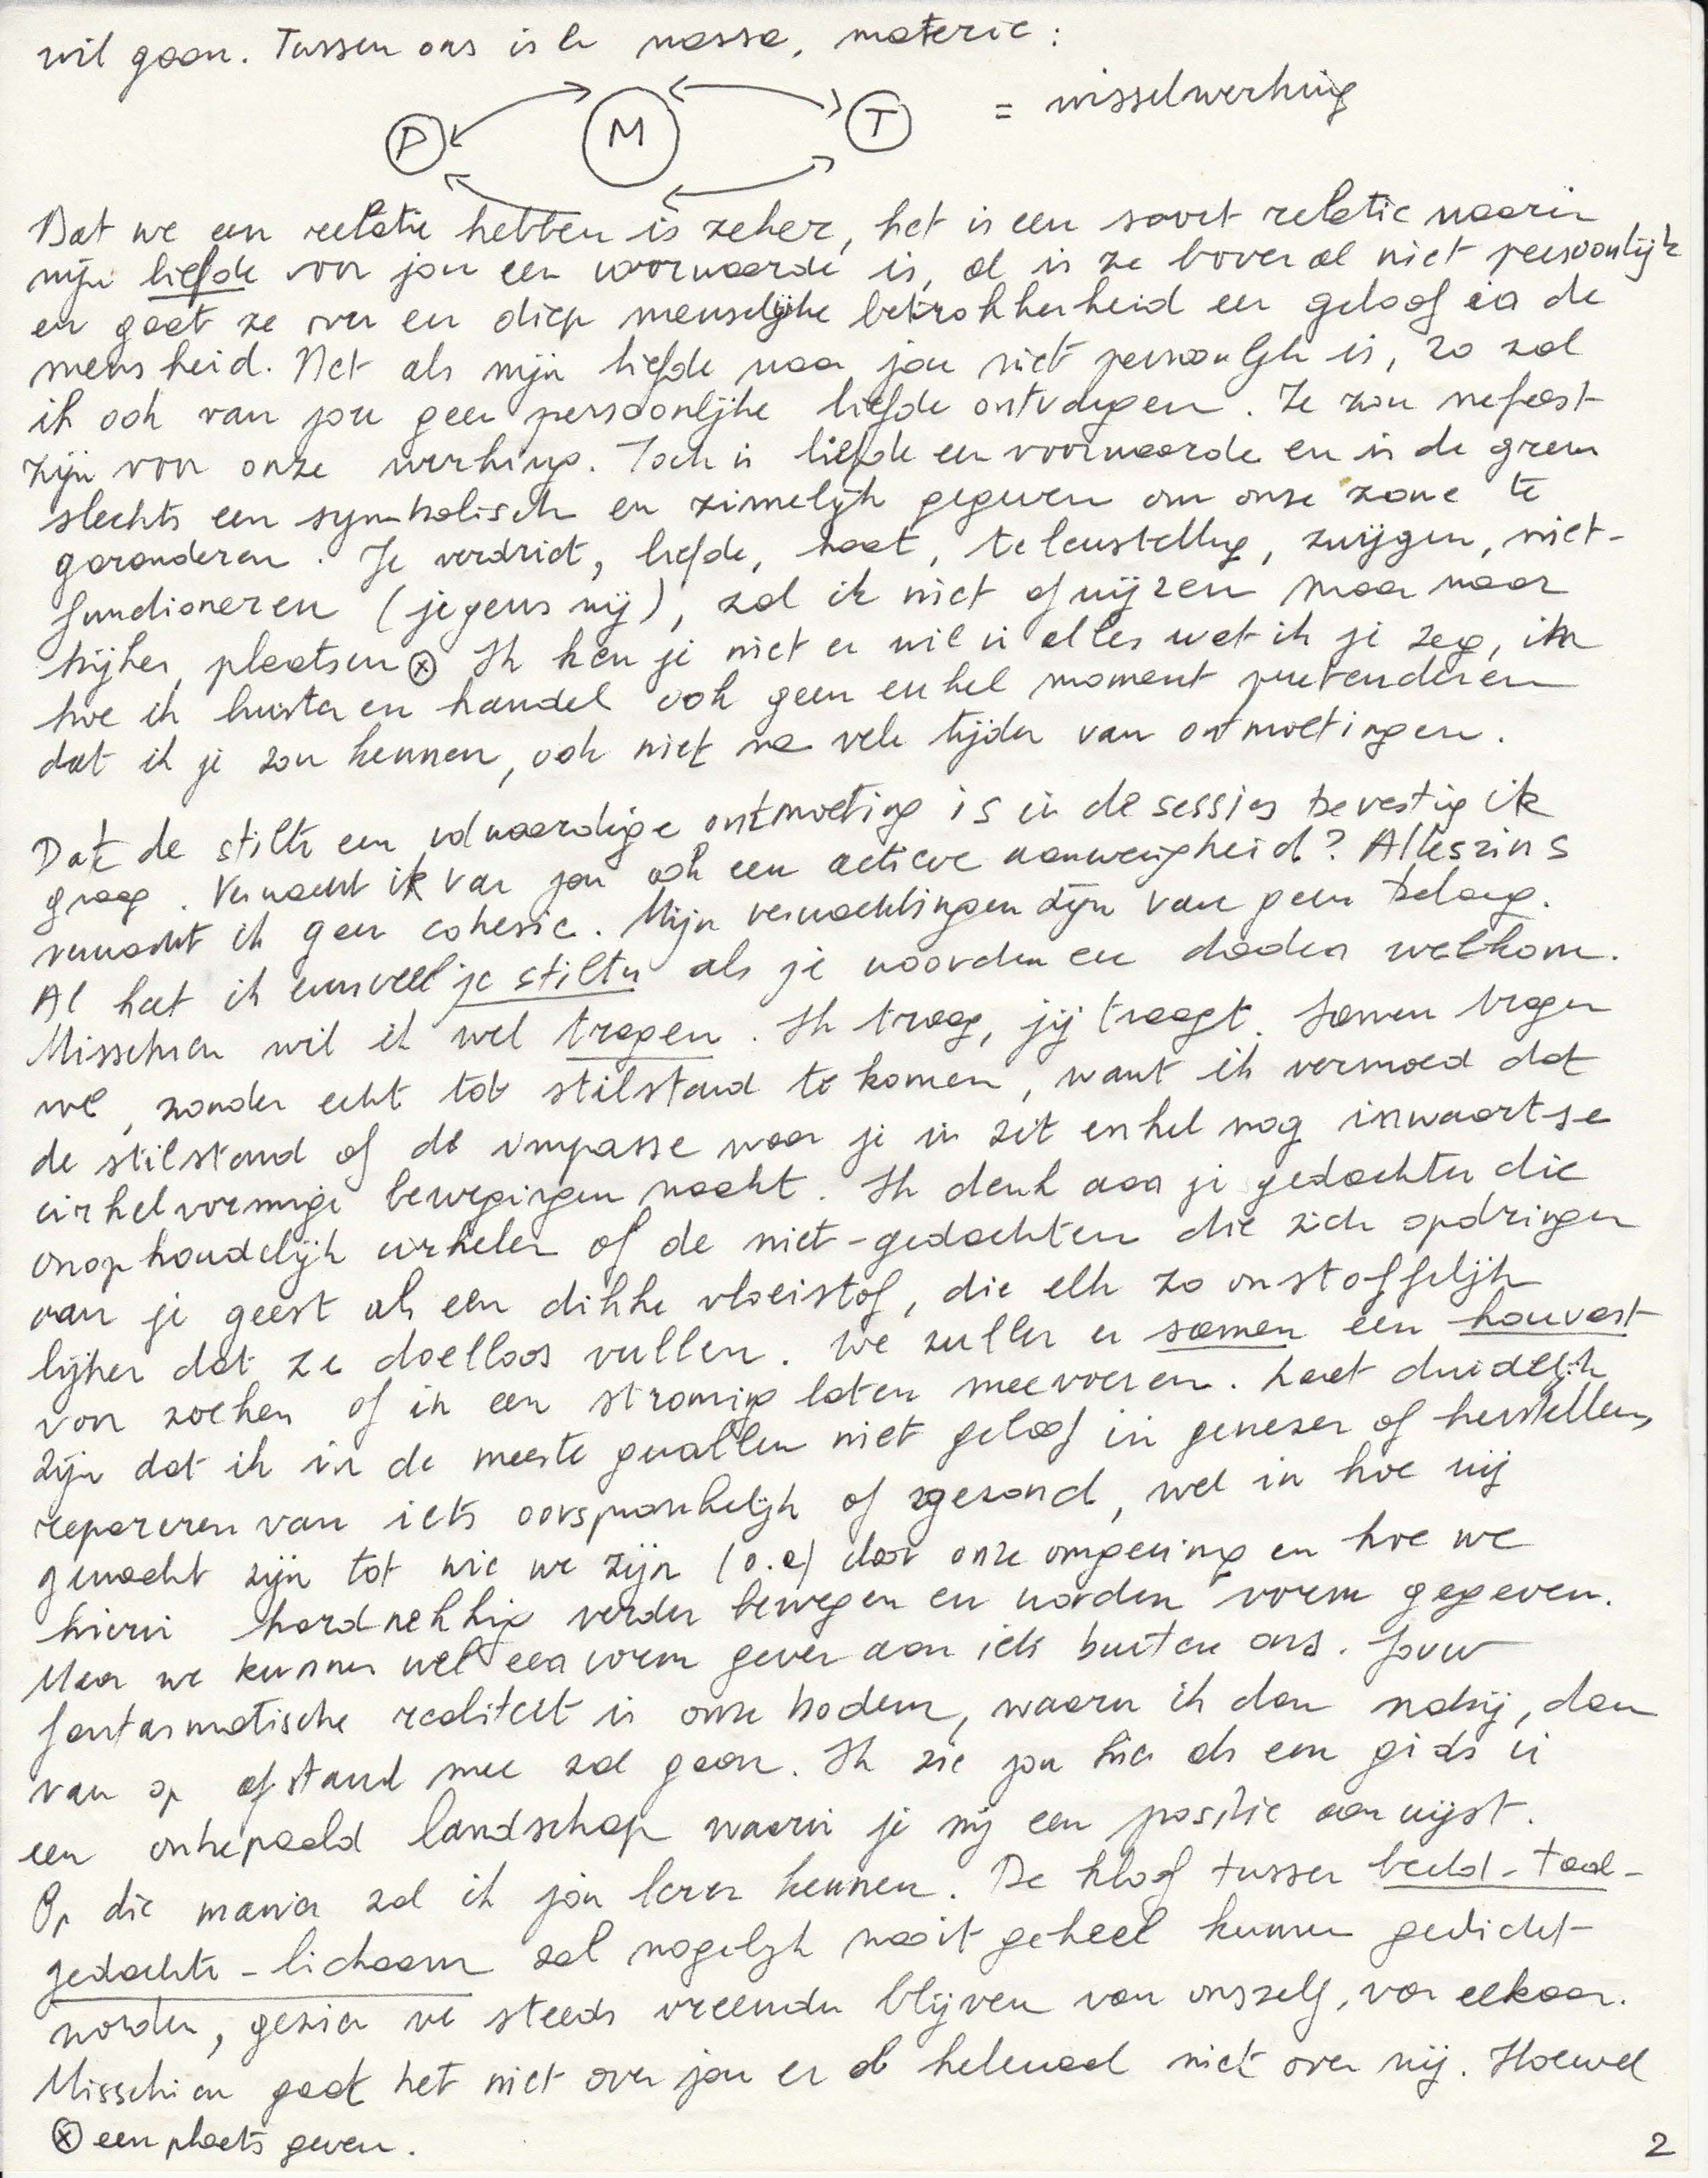 wil gaan. Tussen ons is de massa, materie:
P M T = wisselwerking
Dat we een relatie hebben is zeker, het is een soort relatie waarin
mijn liefde voor jou een voorwaarde is, al is ze bovenal niet persoonlijk
en gaat ze over een diep menselijke betrokkenheid een geloof in de
mensheid. Net als mijn liefde naar jou niet persoonlijk is, zo zal
ik ook van jou geen persoonlijke liefde ontvangen. Ze zou nefast
zijn voor onze werking. Toch is liefde een voorwaarde en is de grens
slechts een symbolisch en zinnelijk gegeven om onze zone te
garanderen. Je verdriet, liefde, haat, teleurstelling, zwijgen, niet-
functioneren (jegens mij), zal ik niet afwijzen maar naar
kijken, plaatsen ⊗ Ik ken je niet en wil in alles wat ik je zeg, in
hoe ik luister en handel ook geen enkel moment pretenderen
dat ik je zou kennen, ook niet na vele tijden van ontmoetingen.
Dat de stilte een volwaardige ontmoeting is in de sessies bevestig ik
graag. Verwacht ik van jou ook een actieve aanwezigheid? Alleszins
verwacht ik geen cohesie. Mijn verwachtingen zijn van geen belang.
Al heet ik evenveel je stiltes als je woorden en daden welkom.
Misschien wil ik wel tragen. Ik traag, jij traagt. Samen tragen
we, zonder echt tot stilstand te komen, want ik vermoed dat
de stilstand of de impasse waar je in zit enkel nog inwaartse
cirkelvormige bewegingen maakt. Ik denk aan je gedachten die
onophoudelijk cirkelen of de niet-gedachten die zich opdringen
aan je geest als een dikke vloeistof, die elk zo onstoffelijk
lijken dat ze doelloos vullen. We zullen er samen een houvast
voor zoeken of in een stroming laten meevoeren. Laat duidelijk
zijn dat ik in de meeste gevallen niet geloof in genezen of herstellen,
repareren van iets oorspronkelijk of gezond, wel in hoe wij
gemaakt zijn tot wie we zijn (o.a) door onze omgeving en hoe we
hierin hardnekkig verder bewegen en worden vorm gegeven.
Maar we kunnen wel een vorm geven aan iets buiten ons. Jouw
fantasmatische realiteit is onze bodem, waarin ik dan nabij, dan
van op afstand mee zal gaan. Ik zie jou hier als een gids in
een onbepaald landschap waarin je mij een positie aanwijst.
Op die manier zal ik jou leren kennen. De kloof tussen beeld-taal-
gedachte-lichaam zal mogelijk nooit geheel kunnen gedicht
worden, gezien we steeds vreemden blijven van onszelf, van elkaar.
Misschien gaat het niet over jou en al helemaal niet over mij. Hoewel
⊗ een plaats geven.
2